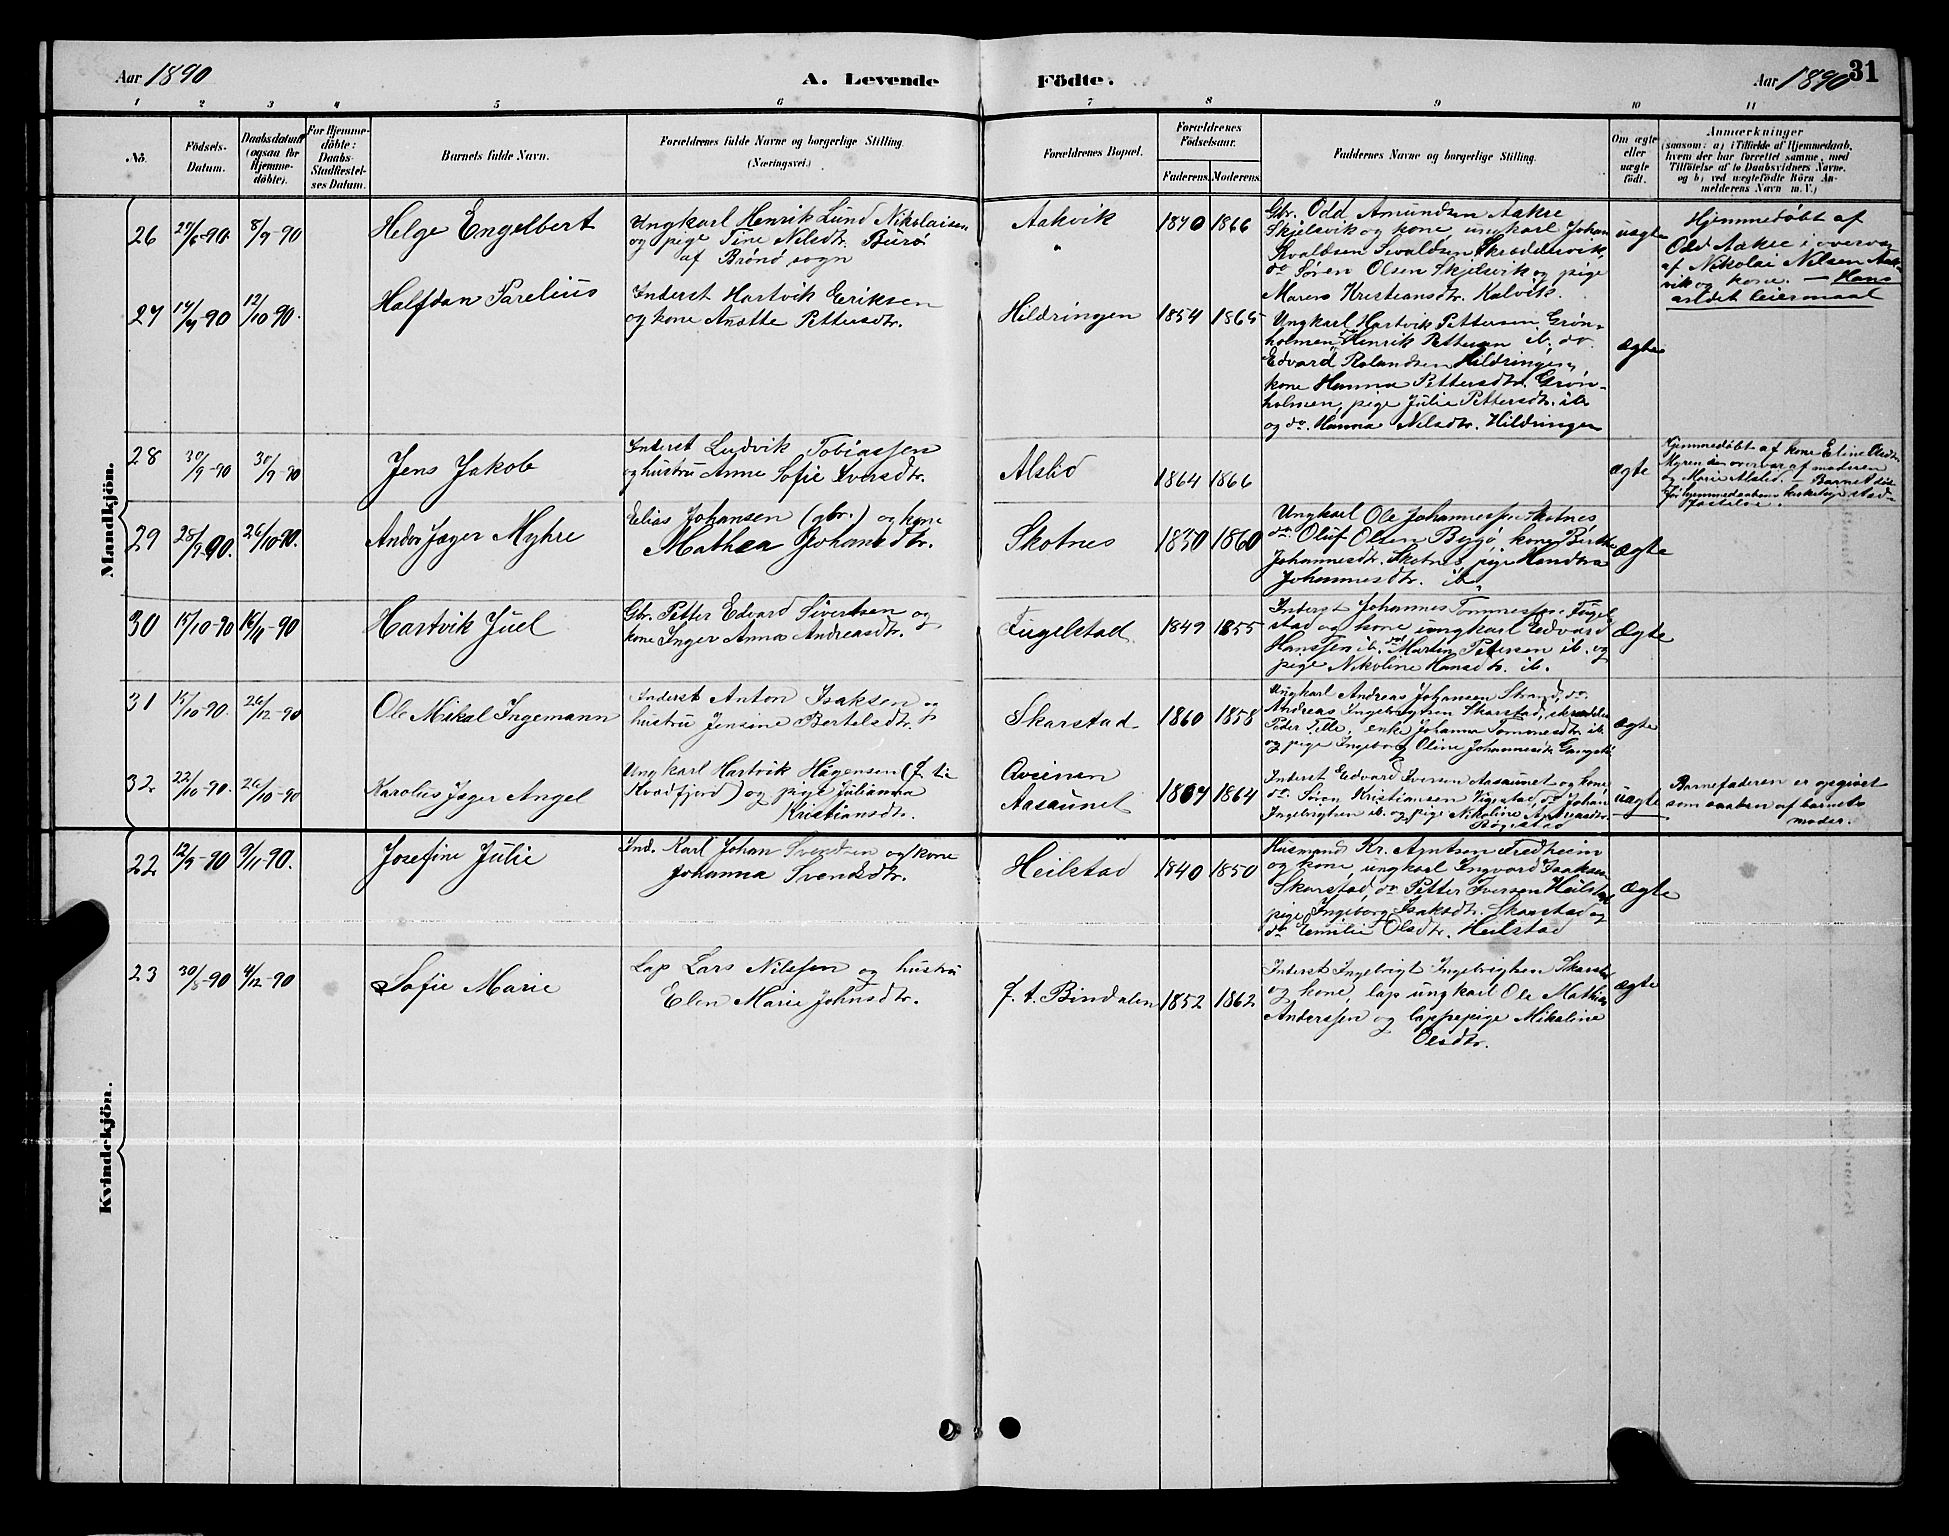 Aar 1890
A. Levende
Födte.
Aar 1890
31
1 2 3 4 5 6 7 8 9 10 11
No.
Födsels-
Datum.
Daabsdatum
(ogsaa for
Hjemme-
döbte).
For Hjemme-
döbte:
Daabs-
Stadfæstel-
ses Datum.
Barnets fulde Navn.
Forældrenes fulde Navne og borgerlige Stilling
(Næringsvei.)
Forældrenes Bopæl.
Forældrenes
Födselsaar.
Faderens. Moderens.
Faddernes Navne og borgerlige Stilling.
Om ægte
eller
uægte
födt.
Anmærkninger
(saasom: a) i Tilfælde af Hjemmedaab,
hvem der har forrettet samme, med
Tilföielse af to Daabsvidners Navne.
og b) ved uægtefödte Börn An-
melderens Navn m. V.)
Mandkjön.
26
27/6-90
8/9-90
Helge Engelbert
Ungkarl Henrik Lund Nikolaisen
og pige Tine Nilsdtr. Burö
af Brönö sogn
Aakvik
"
1870 1866
Gbr. Odd Amundsen Aakre
Skjelsvik og kone, ungkarl Johan
do Sören Olsen Skjelsvik og pige
Maren Kristiansdtr. Kalvik.
uægte
Hjemmedöbt af
Odd Aakre i overvær
af Nikolai Nilsen Aak-
vik og kone. — Hans
leiermaal
27
14/7-90
12/10-90.
Halfdan Parelius
Inderst Hartvik Eriksen
og kone Anætte Pettersdtr.
Hildringen
1854 1865
Ungkarl Hartvik Pettersen Grön-
holmen, Henrik Pettersen ib. do
Edvard Rolandsen Hildringen,
kone Hanna Pettersdtr. Grön-
holmen, pige Julie Pettersdtr. ib
og do. Hanna Nilsdtr. Hildringen
ægte
28
30/9-90
30/9-90
Jens Jakob
Inderst Ludvik Tobiassen
og hustru Anne Sofie Iversdtr.
Alslid
1864 1866
ægte
Hjemmedöbt af kone Eline Olsdtr.
Myren i overvær af moderen
og Marie Alslid. — Barnet död
för hjemmedaabens kirkelige stad-
fæstelse.
29
28/9-90.
26/10-90.
Andor Jæger Myhre
Elias Johansen (gbr.) og kone
Mathea Johansdtr.
Skotnes
1830 1860
Ungkarl Ole Johannessen Skotnes
do. Oluf Olsen Bygö, kone Berthe
Johannesdtr. Skotnes, pige
Johannesdtr. ib.
Ægte
30
15/10-90
16/11-90
Hartvik Juel
Gbr. Petter Edvard Sivertsen og
kone Inger Anna Andreasdtr.
Fugelstad
1849 1855
Inderst Johannes Tommessen Fugel-
stad og kone, ungkarl Edvard
Hanssen ib. do Martin Petersen ib. og
pige Nikoline Hansdtr. ib.
Ægte
31
15/10-90.
26/12-90
Ole Mikal Ingemann
Inderst Anton Isaksen og
hustru Jensine Bertelsdtr.
Skarstad
1860 1858
Ungkarl Andreas Johansen Strand, do.
Andreas Ingebrigtsen Skarstad, skrædder
Peder Telle, enke Johanna Tommesdtr. ib
og pige Ingeborg Oline Johannesdtr.
ægte
32
22/10-90.
26/10-90
Karolus Jæger Angel
Ungkarl Hartvik Hågensen (f. ti
Kvædfjord) og pige Julianna
Kristiansdtr.
Aasaunet
1864
Inderst Edvard Iversen Aasaunet og kone
do. Sören Kristiansen Vigestad, do Johan
Ingebrigtsen ib. og pige Nikoline
uægte
Barnefaderen er opgivet
som saadan af barnets
moder.
Kvindekjön.
22
12/9-90
9/11-90.
Josefine Julie
Ind. Karl Johan Svendsen og kone
Johanna Svendsdtr.
Heilstad
1840 1850
Husmand Kr. Arntsen Fredheim
og kone, ungkarl Ingvard Isaksen
Skarstad, do Petter Iversen Heilstad
pige Ingeborg Isaksdtr. Skarstad og
do Emilie Olsdtr. Heilstad
Ægte
23
30/5-90
4/12-90
Sofie Marie
Lap Lars Nilssen og hustru
Elen Marie Johnsdtr.
f. t. Bindalen
1852 1862
Inderst Ingebrigt Ingebrigtsen Skarstad
og kone, lap ungkarl Ole Mathias
Anderssen og lappepige Mikaline
Olsdtr.
ægte